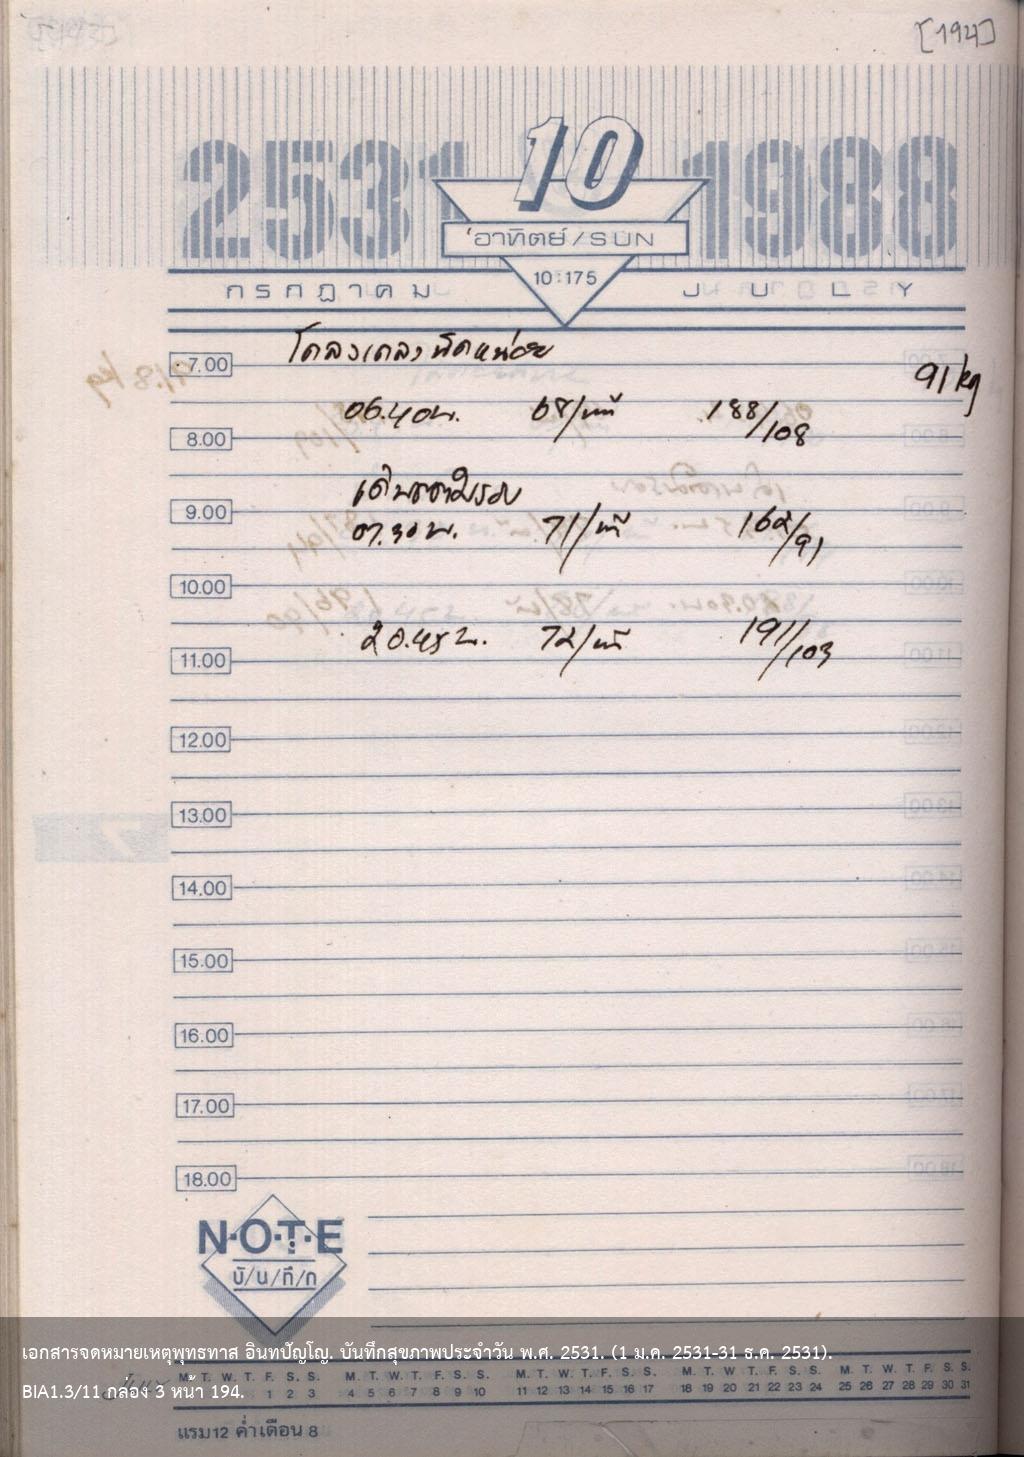 [194]
2531
10
1988
อาทิตย์/SUN
10:175
กรกฎาคม
JULY
โคลงเคลงนิดหน่อย
7.00
91 kg
06.40น. 68/นาที 188/108
8.00
เดินสามรอบ
9.00
07.30 น. 71/นาที 162/91
10.00
20.45 น. 72/นาที 191/103
11.00
12.00
13.00
14.00
15.00
16.00
17.00
18.00
N·O·T·E
บั/น/ทึ/ก
เอกสารจดหมายเหตุพุทธทาส อินทปัญโญ. บันทึกสุขภาพประจำวัน พ.ศ. 2531. (1 ม.ค. 2531-31 ธ.ค. 2531).
M. T. W. T. F. S. S. M. T. W. T. F. S. S. M. T. W. T. F. S. S. M. T. W. T. F. S. S. M. T. W. T. F. S. S.
1 2 3 4 5 6 7 8 9 10 11 12 13 14 15 16 17 18 19 20 21 22 23 24 25 26 27 28 29 30 31
BIA1.3/11 กล่อง 3 หน้า 194.
แรม 12 ค่ำ เดือน 8